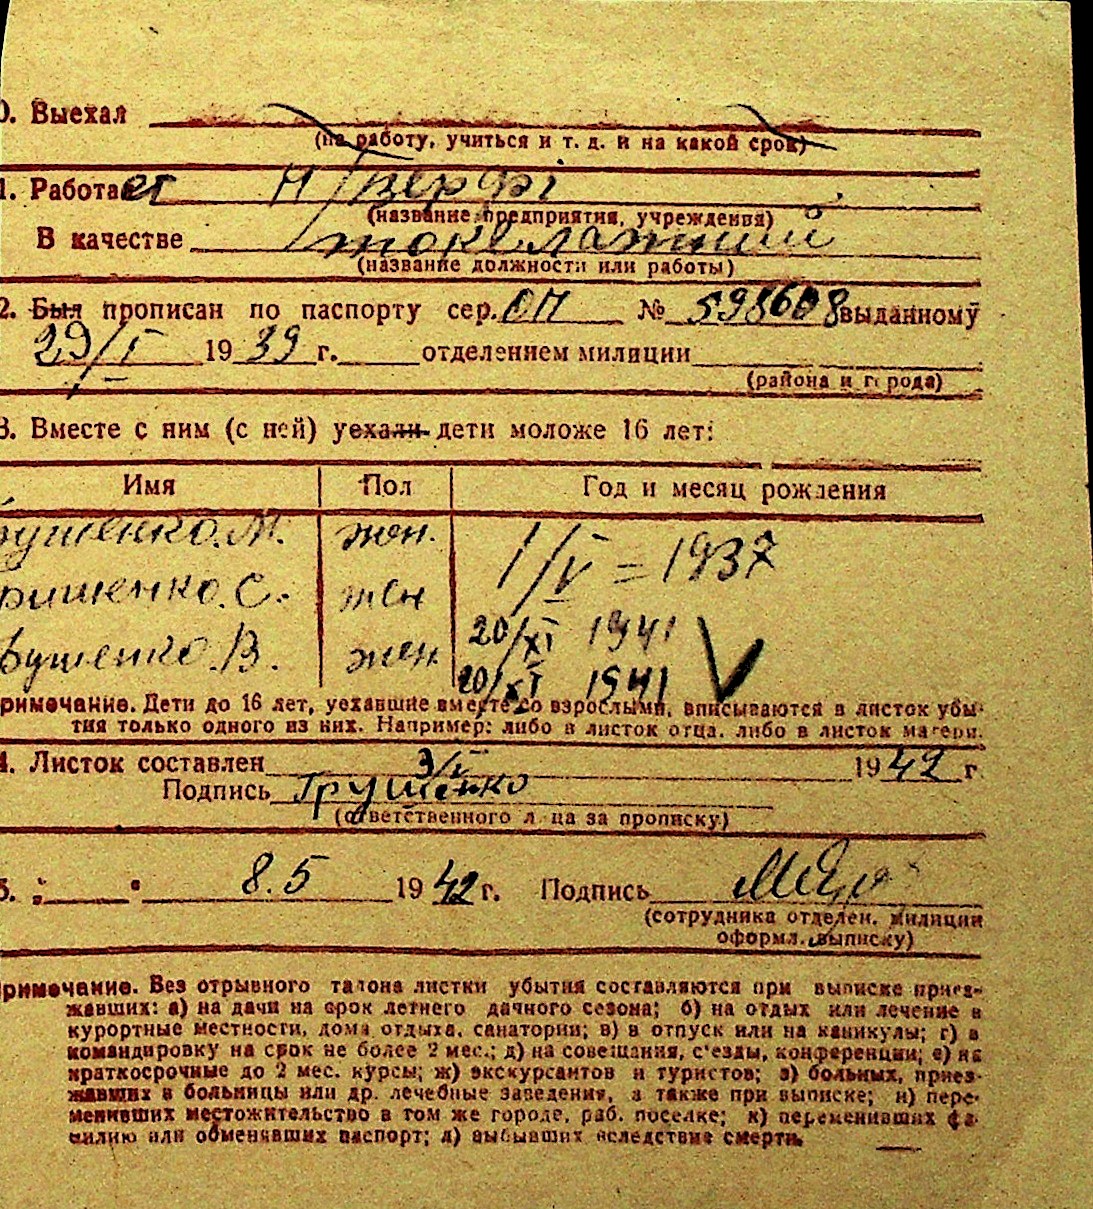 0. Выехал
(на работу, учиться и т. д. и на какой срок)
1. Работает Н/Верфі
(название предприятия, учреждения)
В качестве
(название должности или работы)
2. Был прописан по паспорту сер. ОП № 598608 выданному
29/I 1939 г. отделением милиции
(района и города)
3. Вместе с ним (с ней) уехали дети моложе 16 лет:
Имя Пол Год и месяц рождения
рушенко. М. жен. 1/V = 1937
ришенко. С. жен 20/XI 1941
рушенко. В. жен. 20/XI 1941 V
римечание. Дети до 16 лет, уехавшие вместе со взрослыми, вписываются в листок убы-
тия только одного из них. Например: либо в листок отца, либо в листок матери.
4. Листок составлен 3/V 1942 г.
Подпись Грушенко
(ответственного лица за прописку)
5. „ " 8.5 1942 г. Подпись
(сотрудника отделен. милиции
оформл. выписку)
римечание. Без отрывного талона листки убытия составляются при выписке приез-
жавших: а) на дачи на срок летнего дачного сезона; б) на отдых или лечение в
курортные местности, дома отдыха, санатории; в) в отпуск или на каникулы; г) в
командировку на срок не более 2 мес.; д) на совещания, с'езды, конференции; е) на
краткосрочные до 2 мес. курсы; ж) экскурсантов и туристов; з) больных, приез-
жавших в больницы или др. лечебные заведения, а также при выписке; и) пере-
менивших местожительство в том же городе, раб. поселке; к) переменивших фа-
милию или обменявших паспорт; л) выбывших вследствие смерти.